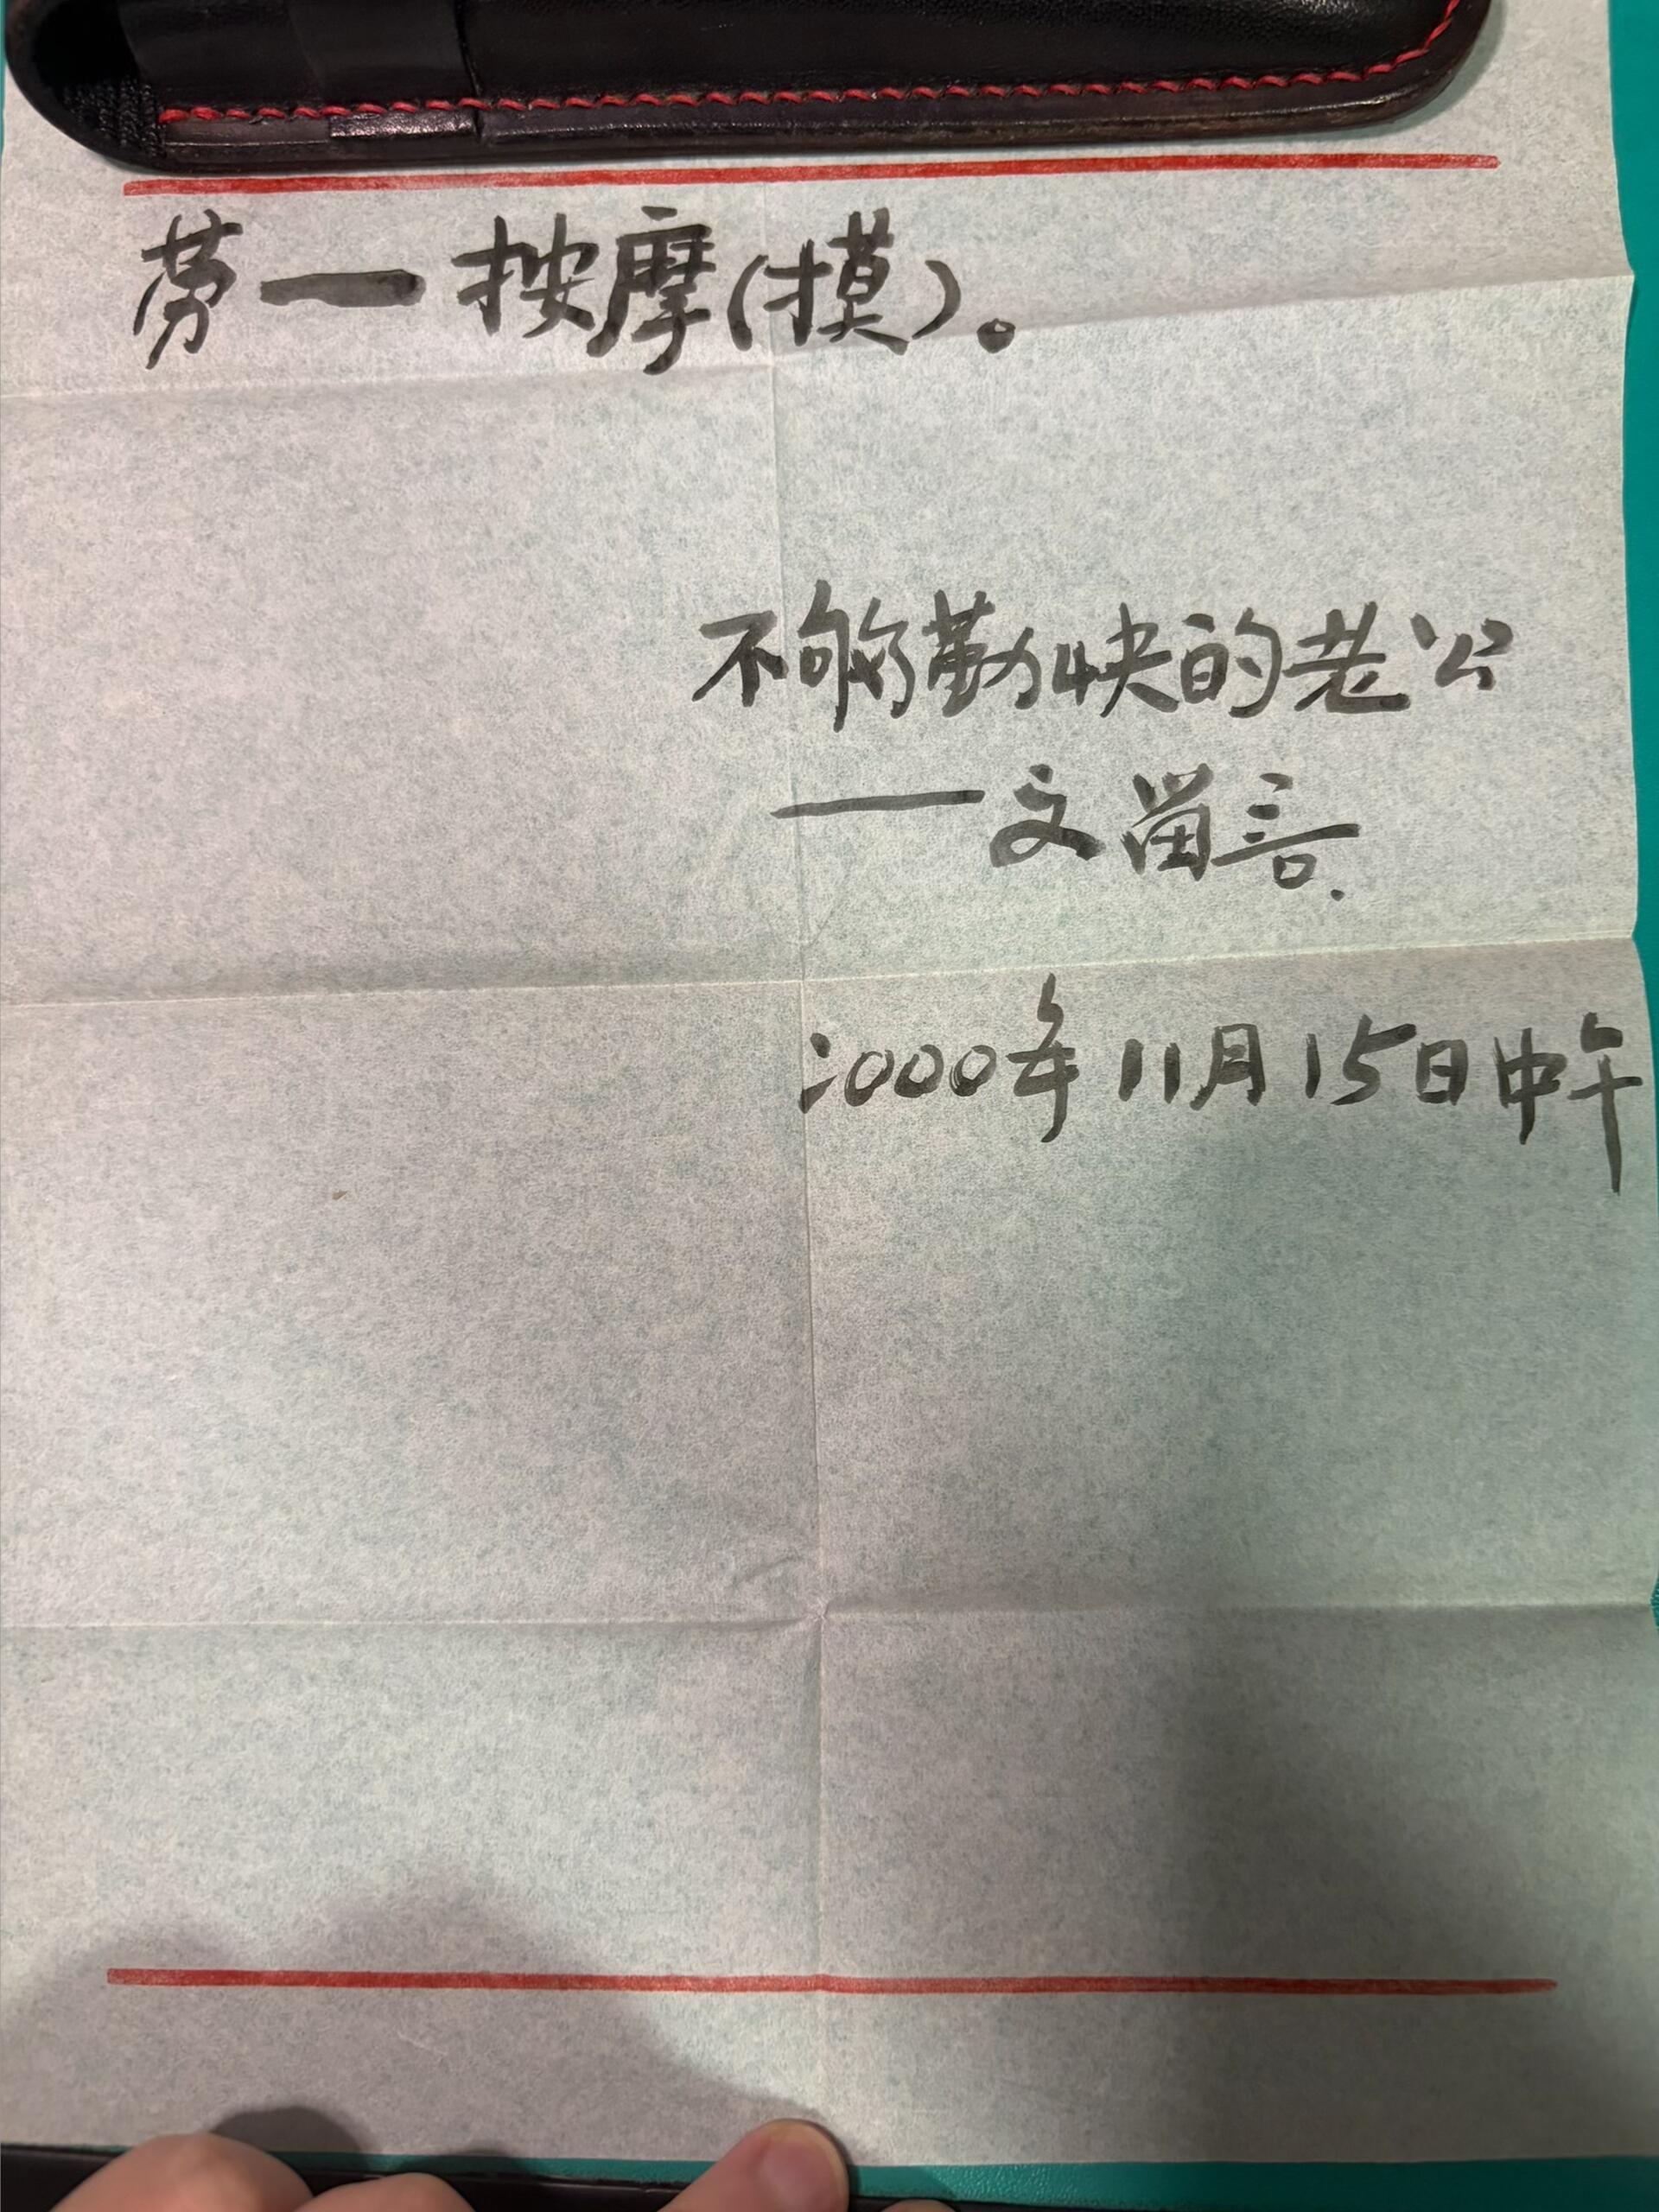 劳一按摩(摸)。
不够勤快的老公
——文留言.
2000年11月15日中午